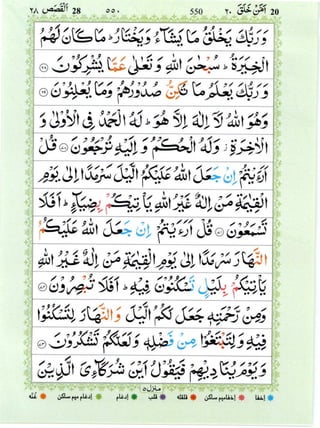 ٢٨ القصص 28 ٥٥٠ 550 امن خلق ٢٠ 20
وَرَبُّكَ يَخْلُقُ مَا يَشَآءُ وَيَخْتَارُ ؕ مَا كَانَ لَهُمُ
الْخِيَرَةُ ؕ سُبْحٰنَ اللّٰهِ وَتَعٰلٰى عَمَّا يُشْرِكُوْنَ ۝۶۸
وَرَبُّكَ يَعْلَمُ مَا تُكِنُّ صُدُوْرُهُمْ وَمَا يُعْلِنُوْنَ ۝۶۹
وَهُوَ اللّٰهُ لَاۤ اِلٰهَ اِلَّا هُوَ ؕ لَهُ الْحَمْدُ فِى الْاُوْلٰى وَ
الْاٰخِرَةِ ؗ وَلَهُ الْحُكْمُ وَ اِلَيْهِ تُرْجَعُوْنَ ۝۷۰ قُلْ
اَرَءَيْتُمْ اِنْ جَعَلَ اللّٰهُ عَلَيْكُمُ الَّيْلَ سَرْمَدًا اِلٰى يَوْمِ
الْقِيٰمَةِ مَنْ اِلٰهٌ غَيْرُ اللّٰهِ يَاْتِيْكُمْ بِضِيَآءٍ ؕ اَفَلَا
تَسْمَعُوْنَ ۝۷۱ قُلْ اَرَءَيْتُمْ اِنْ جَعَلَ اللّٰهُ عَلَيْكُمُ
النَّهَارَ سَرْمَدًا اِلٰى يَوْمِ الْقِيٰمَةِ مَنْ اِلٰهٌ غَيْرُ اللّٰهِ
يَاْتِيْكُمْ بِلَيْلٍ تَسْكُنُوْنَ فِيْهِ ؕ اَفَلَا تُبْصِرُوْنَ ۝۷۲
وَمِنْ رَّحْمَتِهٖ جَعَلَ لَكُمُ الَّيْلَ وَ النَّهَارَ لِتَسْكُنُوْا
فِيْهِ وَ لِتَبْتَغُوْا مِنْ فَضْلِهٖ وَلَعَلَّكُمْ تَشْكُرُوْنَ ۝۷۳
وَ يَوْمَ يُنَادِيْهِمْ فَيَقُوْلُ اَيْنَ شُرَكَآءِىَ الَّذِيْنَ
منزل ٥
اخفا اخفا میم ساکن قلقله قلب ادغام ادغام میم ساکن غنه